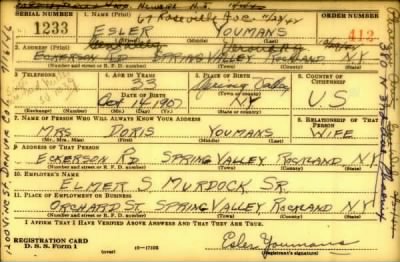 Newark N.J.
SERIAL NUMBER 1. NAME (Print) ORDER NUMBER
1233 ESLER YOUMANS 412
(First) (Middle) (Last)
2. ADDRESS (Print)
ECKERSON SPRING VALLEY ROCKLAND N.Y.
(Number and street or R. F. D. number) (Town) (County) (State)
3. TELEPHONE 4. AGE IN YEARS 5. PLACE OF BIRTH 6. COUNTRY OF CITIZENSHIP
33 Spring Valley
DATE OF BIRTH (Town or county)
Oct 14 1907 NY U S
(Exchange) (Number) (Mo.) (Day) (Yr.) (State or country)
7. NAME OF PERSON WHO WILL ALWAYS KNOW YOUR ADDRESS 8. RELATIONSHIP OF THAT PERSON
MRS DORIS YOUMANS WIFE
(Mr., Mrs., Miss) (First) (Middle) (Last)
9. ADDRESS OF THAT PERSON
ECKERSON RD SPRING VALLEY ROCKLAND N.Y.
(Number and street or R. F. D. number) (Town) (County) (State)
10. EMPLOYER'S NAME
ELMER S. MURDOCK SR.
11. PLACE OF EMPLOYMENT OR BUSINESS
ORCHARD ST. SPRING VALLEY ROCKLAND N.Y.
(Number and street or R. F. D. number) (Town) (County) (State)
I AFFIRM THAT I HAVE VERIFIED ABOVE ANSWERS AND THAT THEY ARE TRUE.
REGISTRATION CARD
D. S. S. Form 1 (over) Esler Youmans
(Registrant's signature)